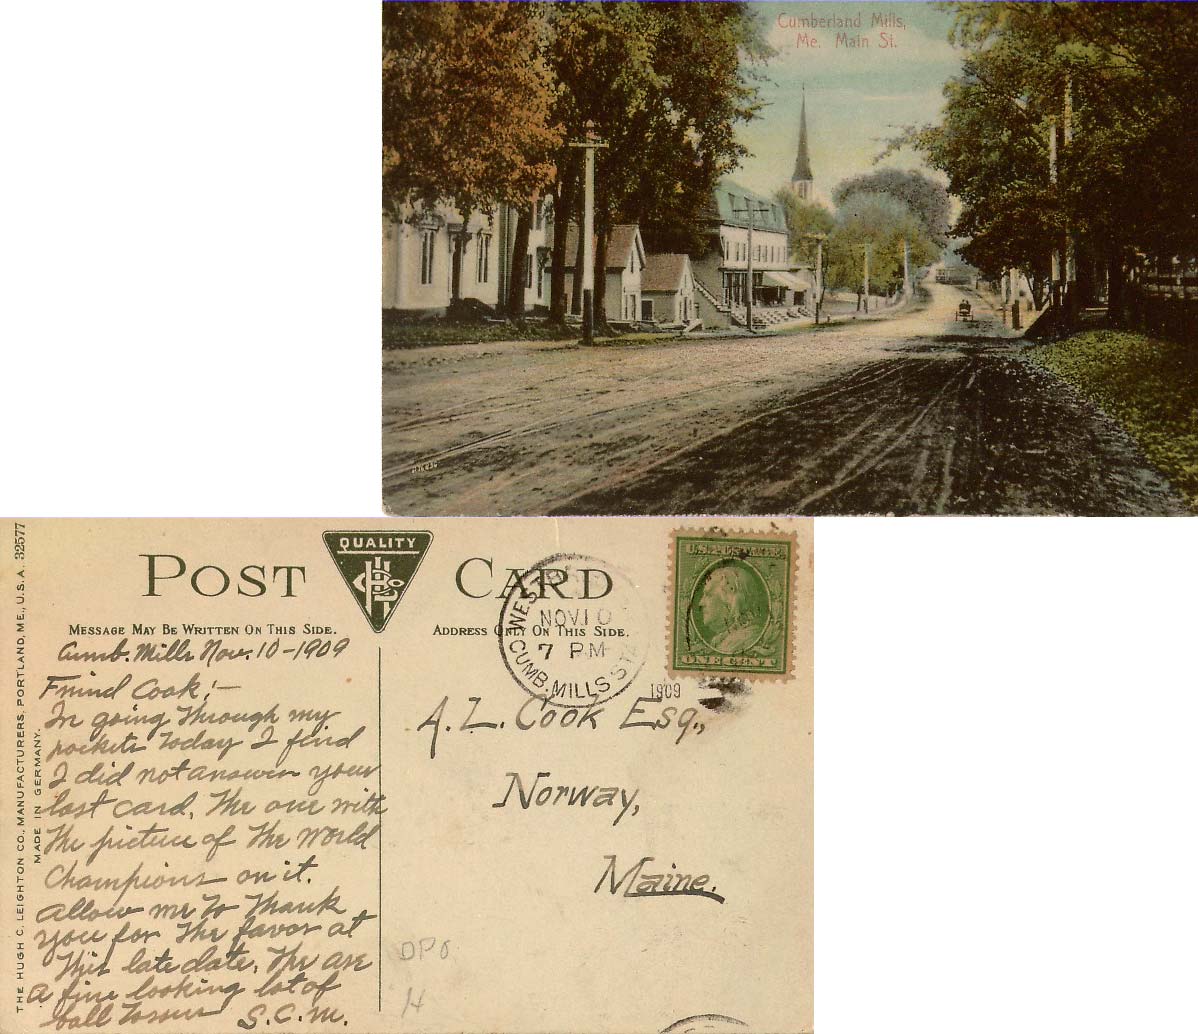 Cumberland Mills,
Me. Main St.
THE HUGH C. LEIGHTON CO., MANUFACTURERS, PORTLAND, ME., U.S.A. 32577
MADE IN GERMANY.
POST CARD
QUALITY
MESSAGE MAY BE WRITTEN ON THIS SIDE.
ADDRESS ONLY ON THIS SIDE.
Cumb. Mills Nov. 10-1909
Friend Cook:-
In going through my
pockets today I find
I did not answer your
last card. The one with
the picture of the World
Champions on it.
Allow me to thank
you for the favor at
this late date. The are
a fine looking lot of
ball tossers S.C.M.
NOV 10
7 PM
CUMB. MILLS STA
1909
ONE CENT
A. L. Cook Esq.,
Norway,
Maine.
DPO